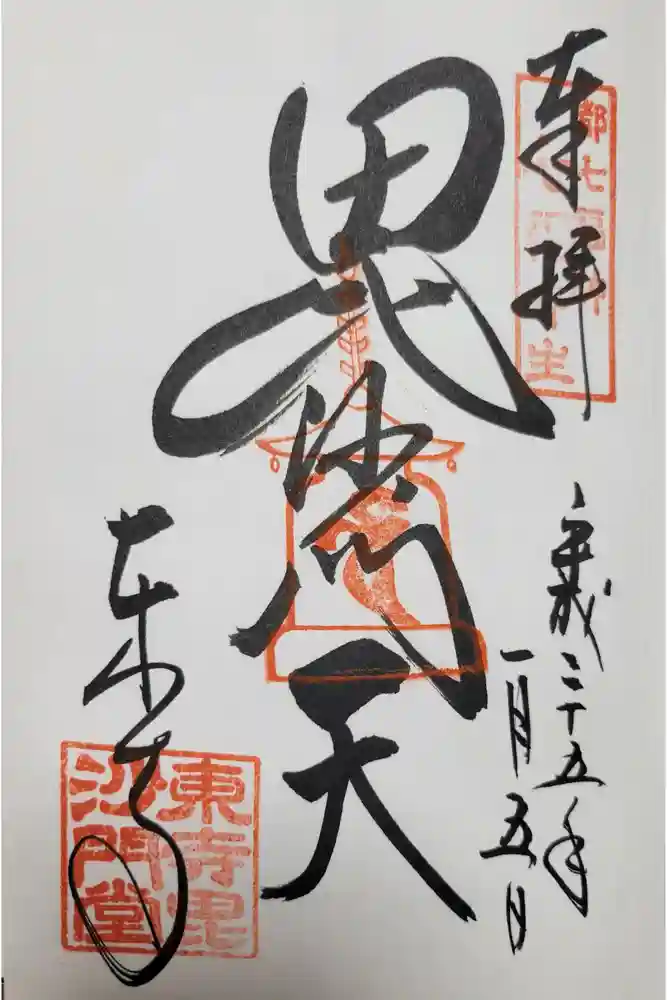 奉拝
都七福神
平成二十五年
一月五日
毘沙門天
東寺
東寺毘
沙門堂